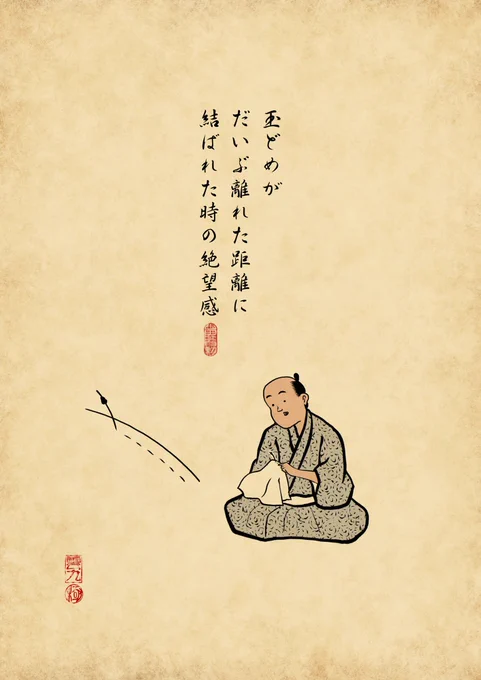 玉どめが
だいぶ離れた距離に
結ばれた時の絶望感